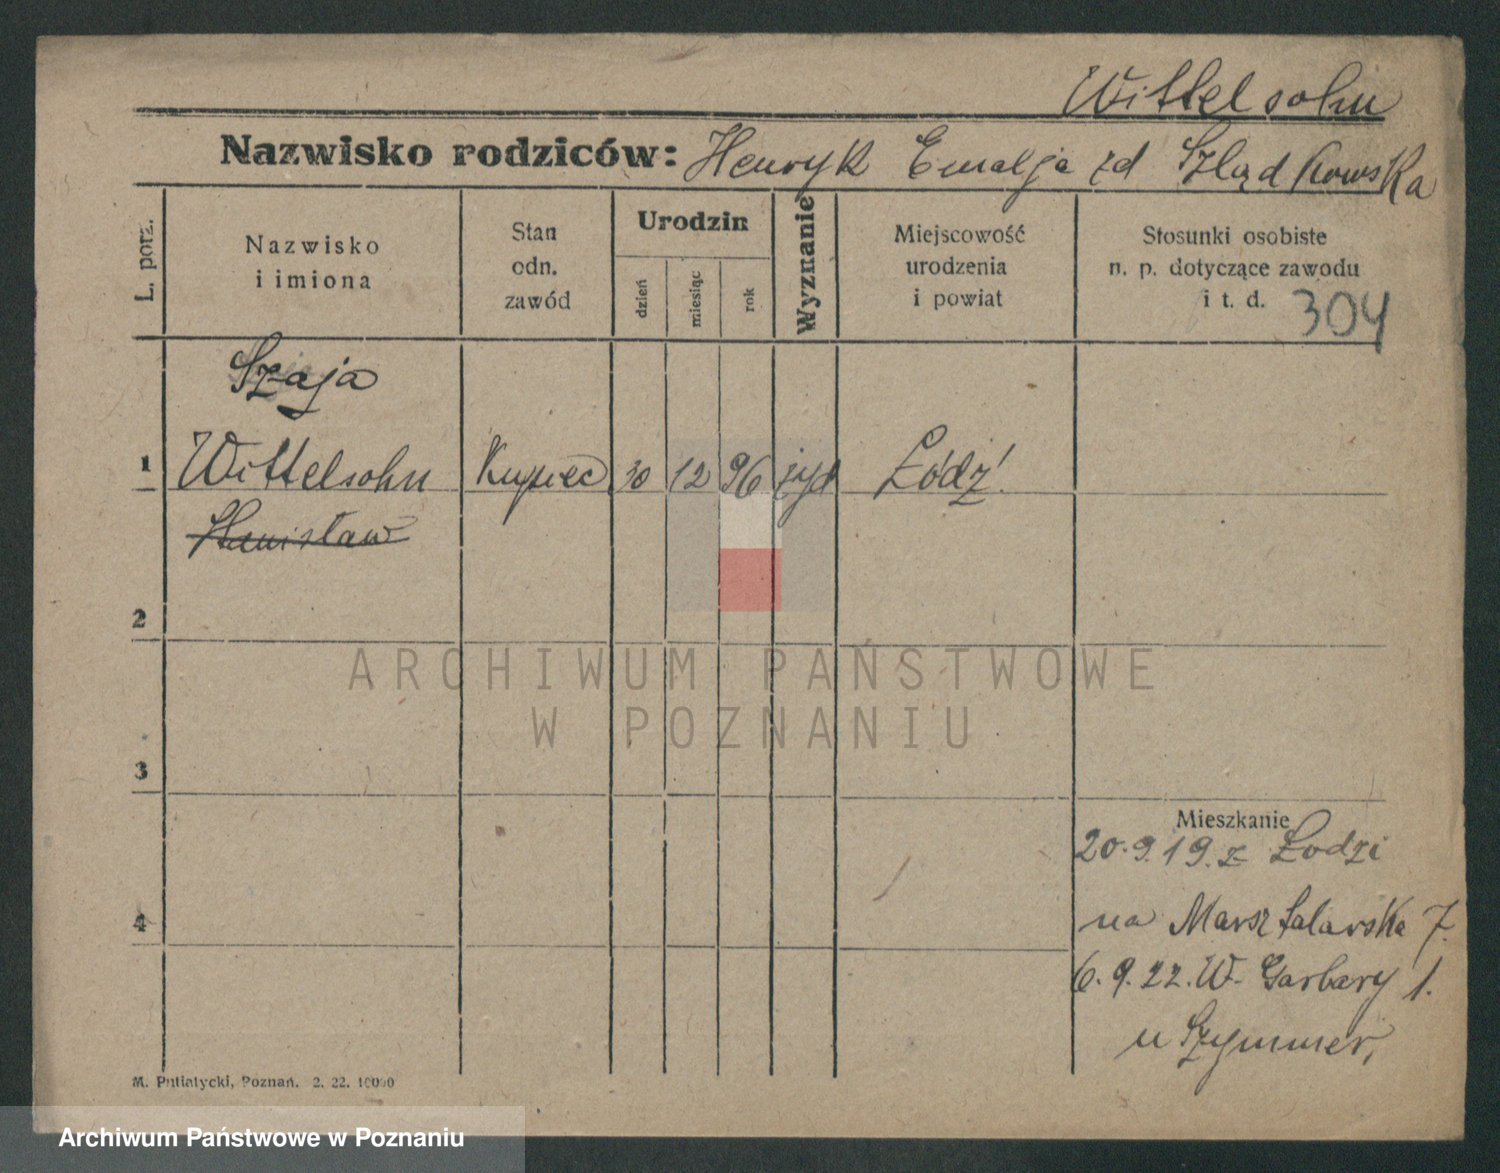 Wittelsohn
Nazwisko rodziców: Henryk Emalja zd Szlądkowska
L. porz.
Nazwisko
i imiona
Stan
odn.
zawód
Urodzin
dzień
miesiąc
rok
Wyznanie
Miejscowość
urodzenia
i powiat
Stosunki osobiste
n. p. dotyczące zawodu
i t. d. 304
Szaja
1 Wittelsohn Kupiec 30 12 96 żyd Łódź
Stanisław
2
3
4
Mieszkanie
20.9.19. z Łodzi
na Marsztalarska 7.
6.9.22. W. Garbary 1.
u Szymmer,
M. Putiatycki, Poznań. 2. 22. 10000
ARCHIWUM PAŃSTWOWE
W POZNANIU
Archiwum Państwowe w Poznaniu